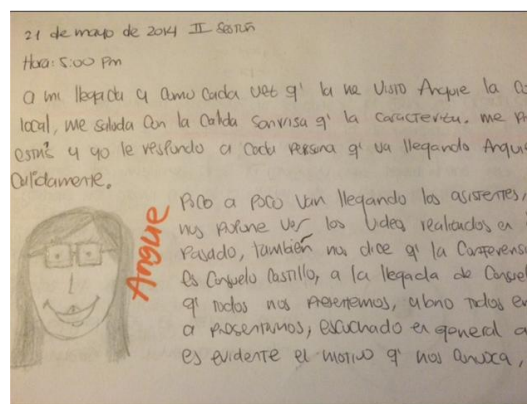 21 de mayo de 2014 II Sesión
Hora: 5:00 Pm
a mi llegada y como cada vez q' la he visto Angie la
local, me saluda con la calida sonrisa q' la caracteriza. me
estás y yo le respondo a cada persona q' va llegando
calidamente.
Angue
Poco a poco van llegando los asistentes,
nos propone ver los videos realizados en
pasado, también nos dice q' la
es Consuelo Castillo, a la llegada de
q' todos nos presentemos, todos
a presentarnos, escuchado en general
es evidente el motivo q' nos convoca,